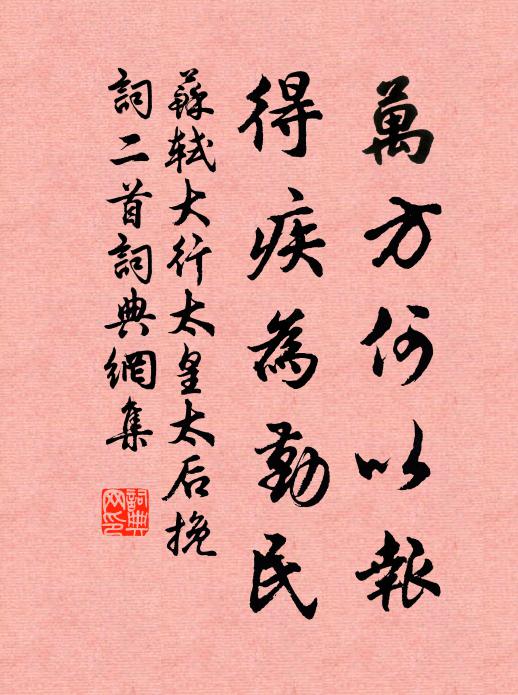 萬方何以報
得疾為勤民
蘇軾大行太皇太后挽
詞二首詞典網集
詞典
网印